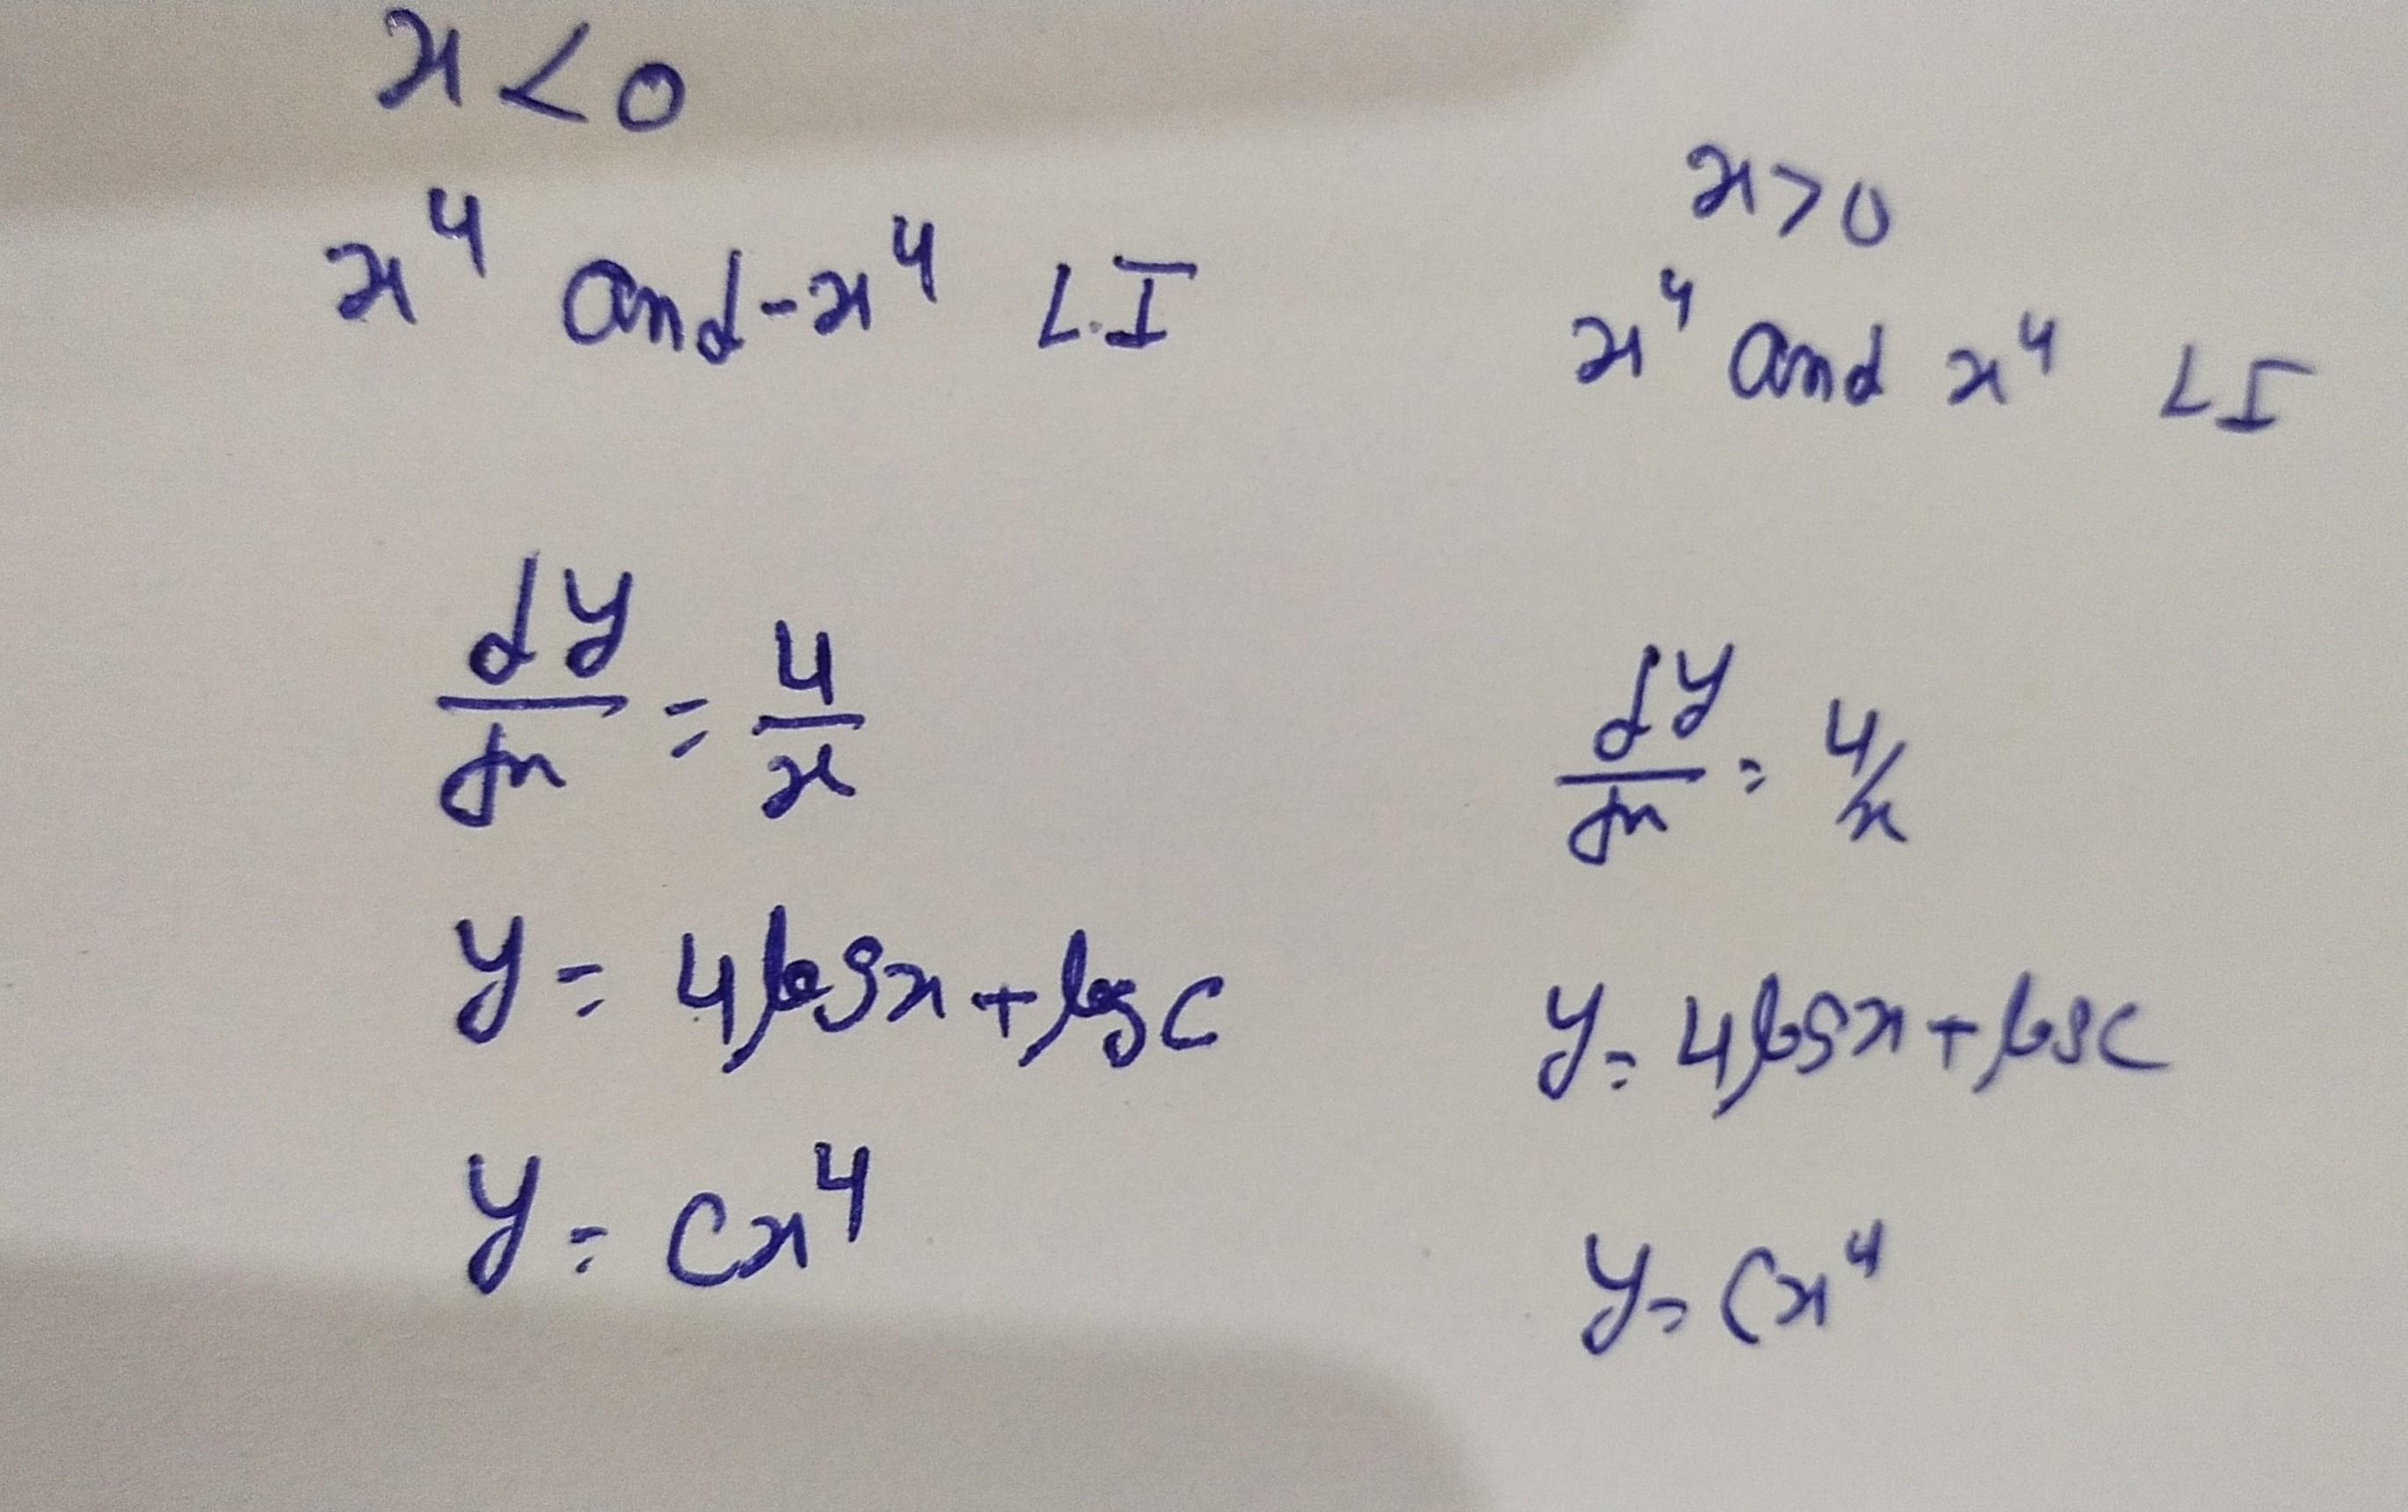 x < 0
x⁴ and -x⁴ L.I
dy/dx = 4/x
y = 4logx + logc
y = cx⁴
x > 0
x⁴ and x⁴ LI
dy/dx = 4/x
y = 4logx + logc
y = cx⁴